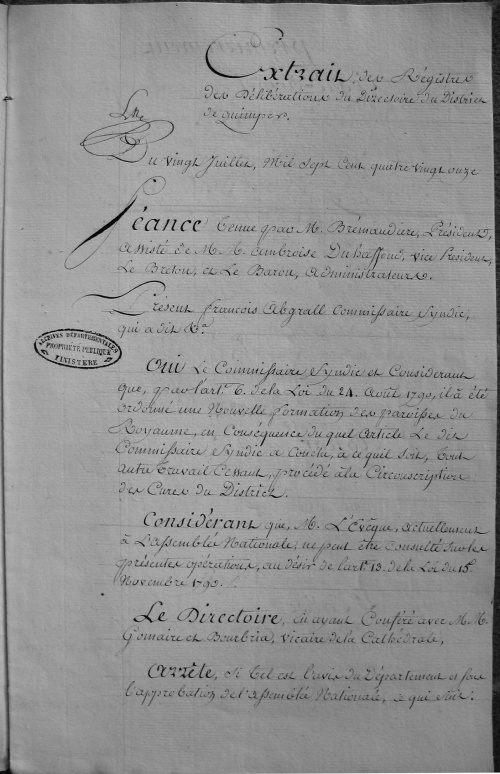 Extrait, des Régistres
des Délibérations du Directoire du District
de quimper.
Du vingt Juillet, Mil Sept Cent quatre vingt onze
Séance tenue par M. Brémaudiere, Président,
assisté de M. M. ambroise Duhaffond, vice President,
Le Breton, et Le Baron, administrateurs.
Présent françois Abgrall Commissaire Syndic,
qui a dit &a.
ARCHIVES DÉPARTEMENTALES
PROPRIÉTÉ PUBLIQUE
FINISTÈRE
Oui Le Commissaire Syndic et Considerant
que, par l'art. 6. de la Loi du 24. Août 1790, il à été
ordonné une Nouvelle formation des paroisses du
Royaume, en Conséquence du quel Article Le dit
Commissaire Syndic a Conclu, à ce quil soit, tout
autre travail Cessant, procédé à la Circonscripture
des Cures du District.
Considérant que, M. L'Evêque, actuellement
à L'assemblée Nationale, ne peut être Consulté sur les
présentes opérations, au désir de l'art. 13. de la Loi du 15.
Novembre 1790.
Le Directoire, en ayant Conféré avec M. M.
Gomaire et Bourbria, vicaire de la Cathédrale,
Arrête, si tel est l'avis du Département et sace
l'approbation de l'assemblée Nationale, ce qui suit.